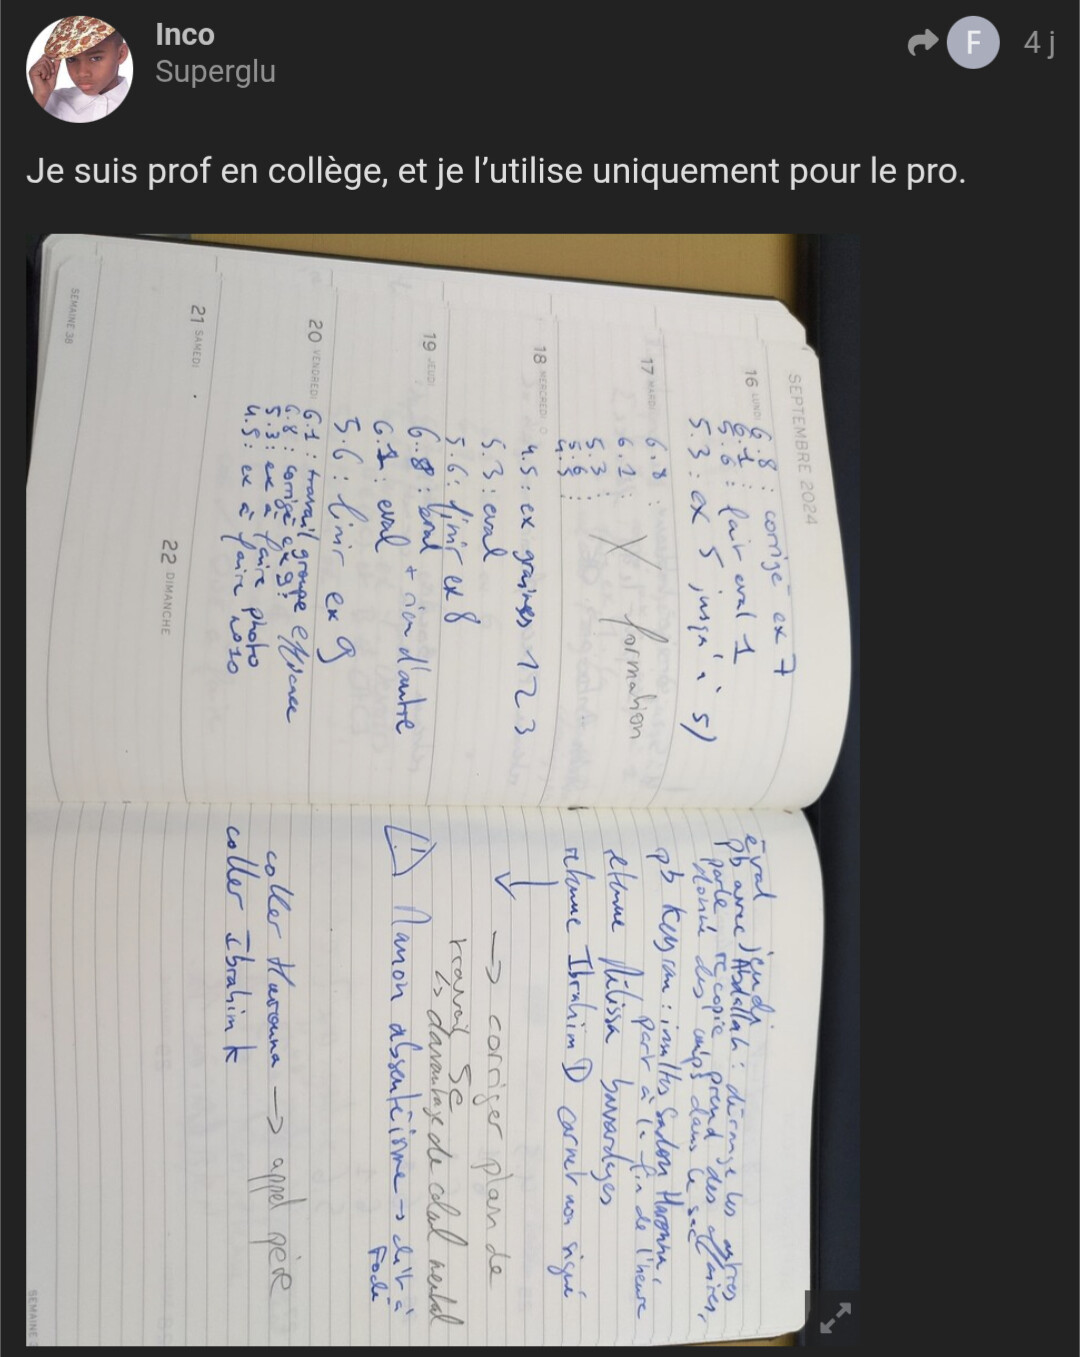 Inco
Superglu
F
4 j
Je suis prof en collège, et je l’utilise uniquement pour le pro.
SEPTEMBRE 2024
16 LUNDI
6.8 : corrigé ex 7
6.1 :
5.6 : fait eval 1
5.3 : ex 5 jusqu'à 5)
17 MARDI
6.8 :
6.1 :
5.3 :
5.6 :
4.5 :
X formation
18 MERCREDI
4.5 : ex 1 2 3
5.3 : eval
5.6 : finir ex 8
19 JEUDI
6.8 : eval + rien d'autre
6.1 : eval
5.6 : finir ex 9
20 VENDREDI
6.1 : travail groupe
6.8 : corrigé ex 9!
5.3 : ex à faire photo
4.5 : ex à faire no10
21 SAMEDI
22 DIMANCHE
SEMAINE 38
éval jeudi
pb avec Abdallah : dérange les autres
parle recopie prend des affaires,
donné des coups dans le sac
pb Keyran : insultes Harouna,
part à la fin de l'heure
retenue Mélissa bavardages
retenue Ibrahim D carnet non signé
→ corriger plan de
travail 5e
↳ davantage de calcul mental
⚠ Manon absentéisme → dit à
Fodé
coller Harouna → appel père
coller Ibrahim K
SEMAINE